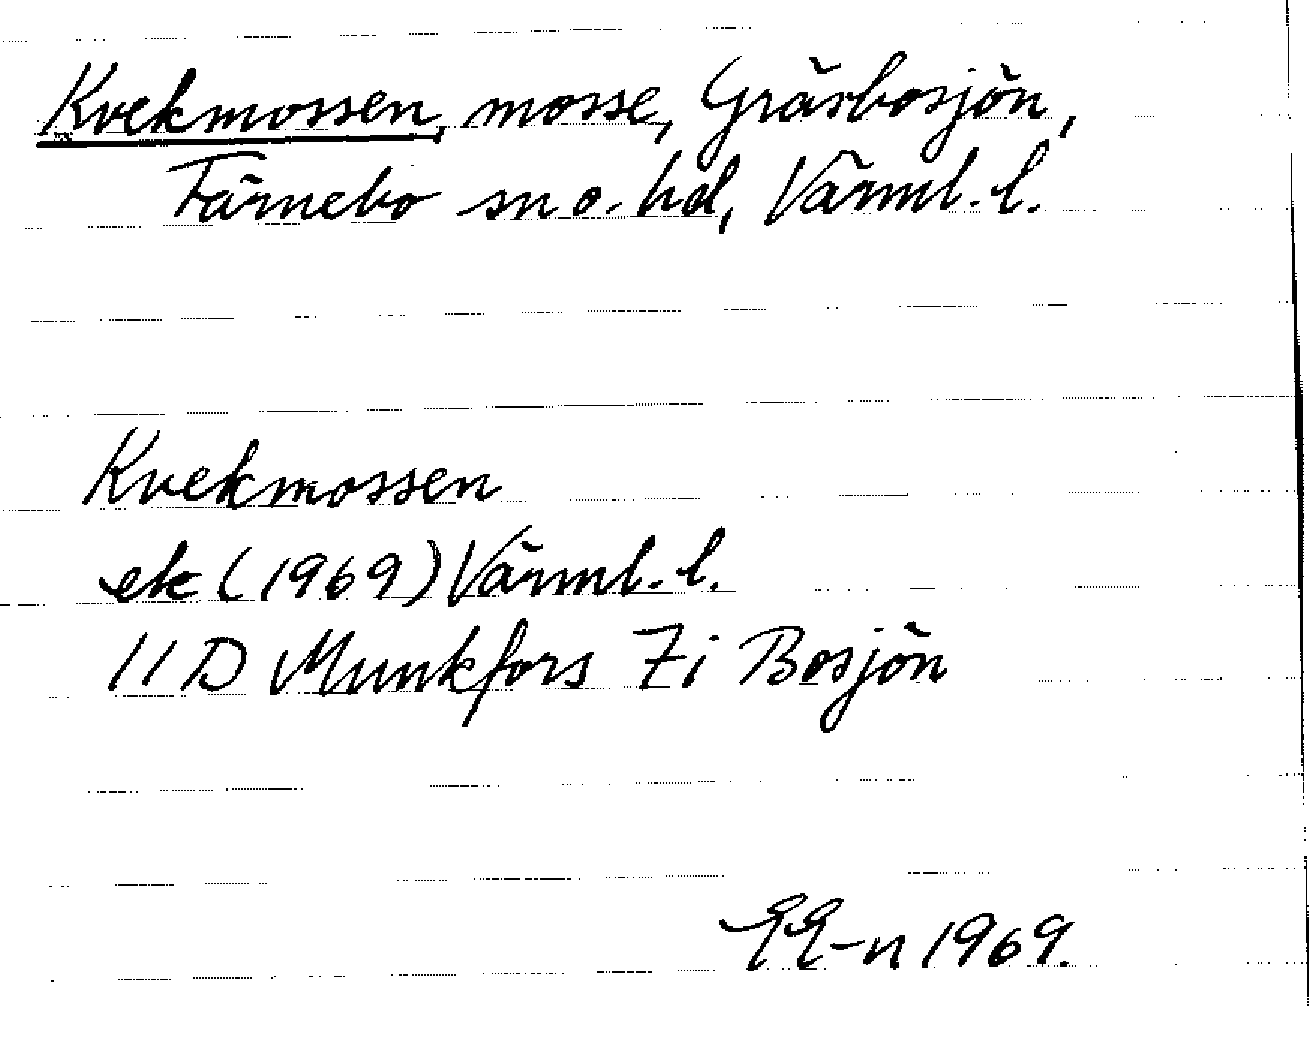 Kvekmossen, mosse, Gräsbosjön,
Färnebo sn o. hd, Värml. l.
Kvekmossen
ek (1969) Värml. l.
11 D Munkfors 7i Bosjön
EE-n 1969.